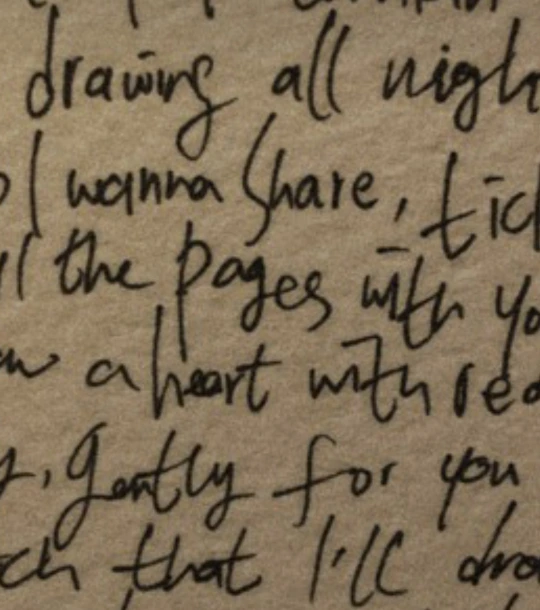 drawing all nigh
I wanna share, tick
ll the pages with yo
w a heart with red
y, gently for you
ch that I'll dra